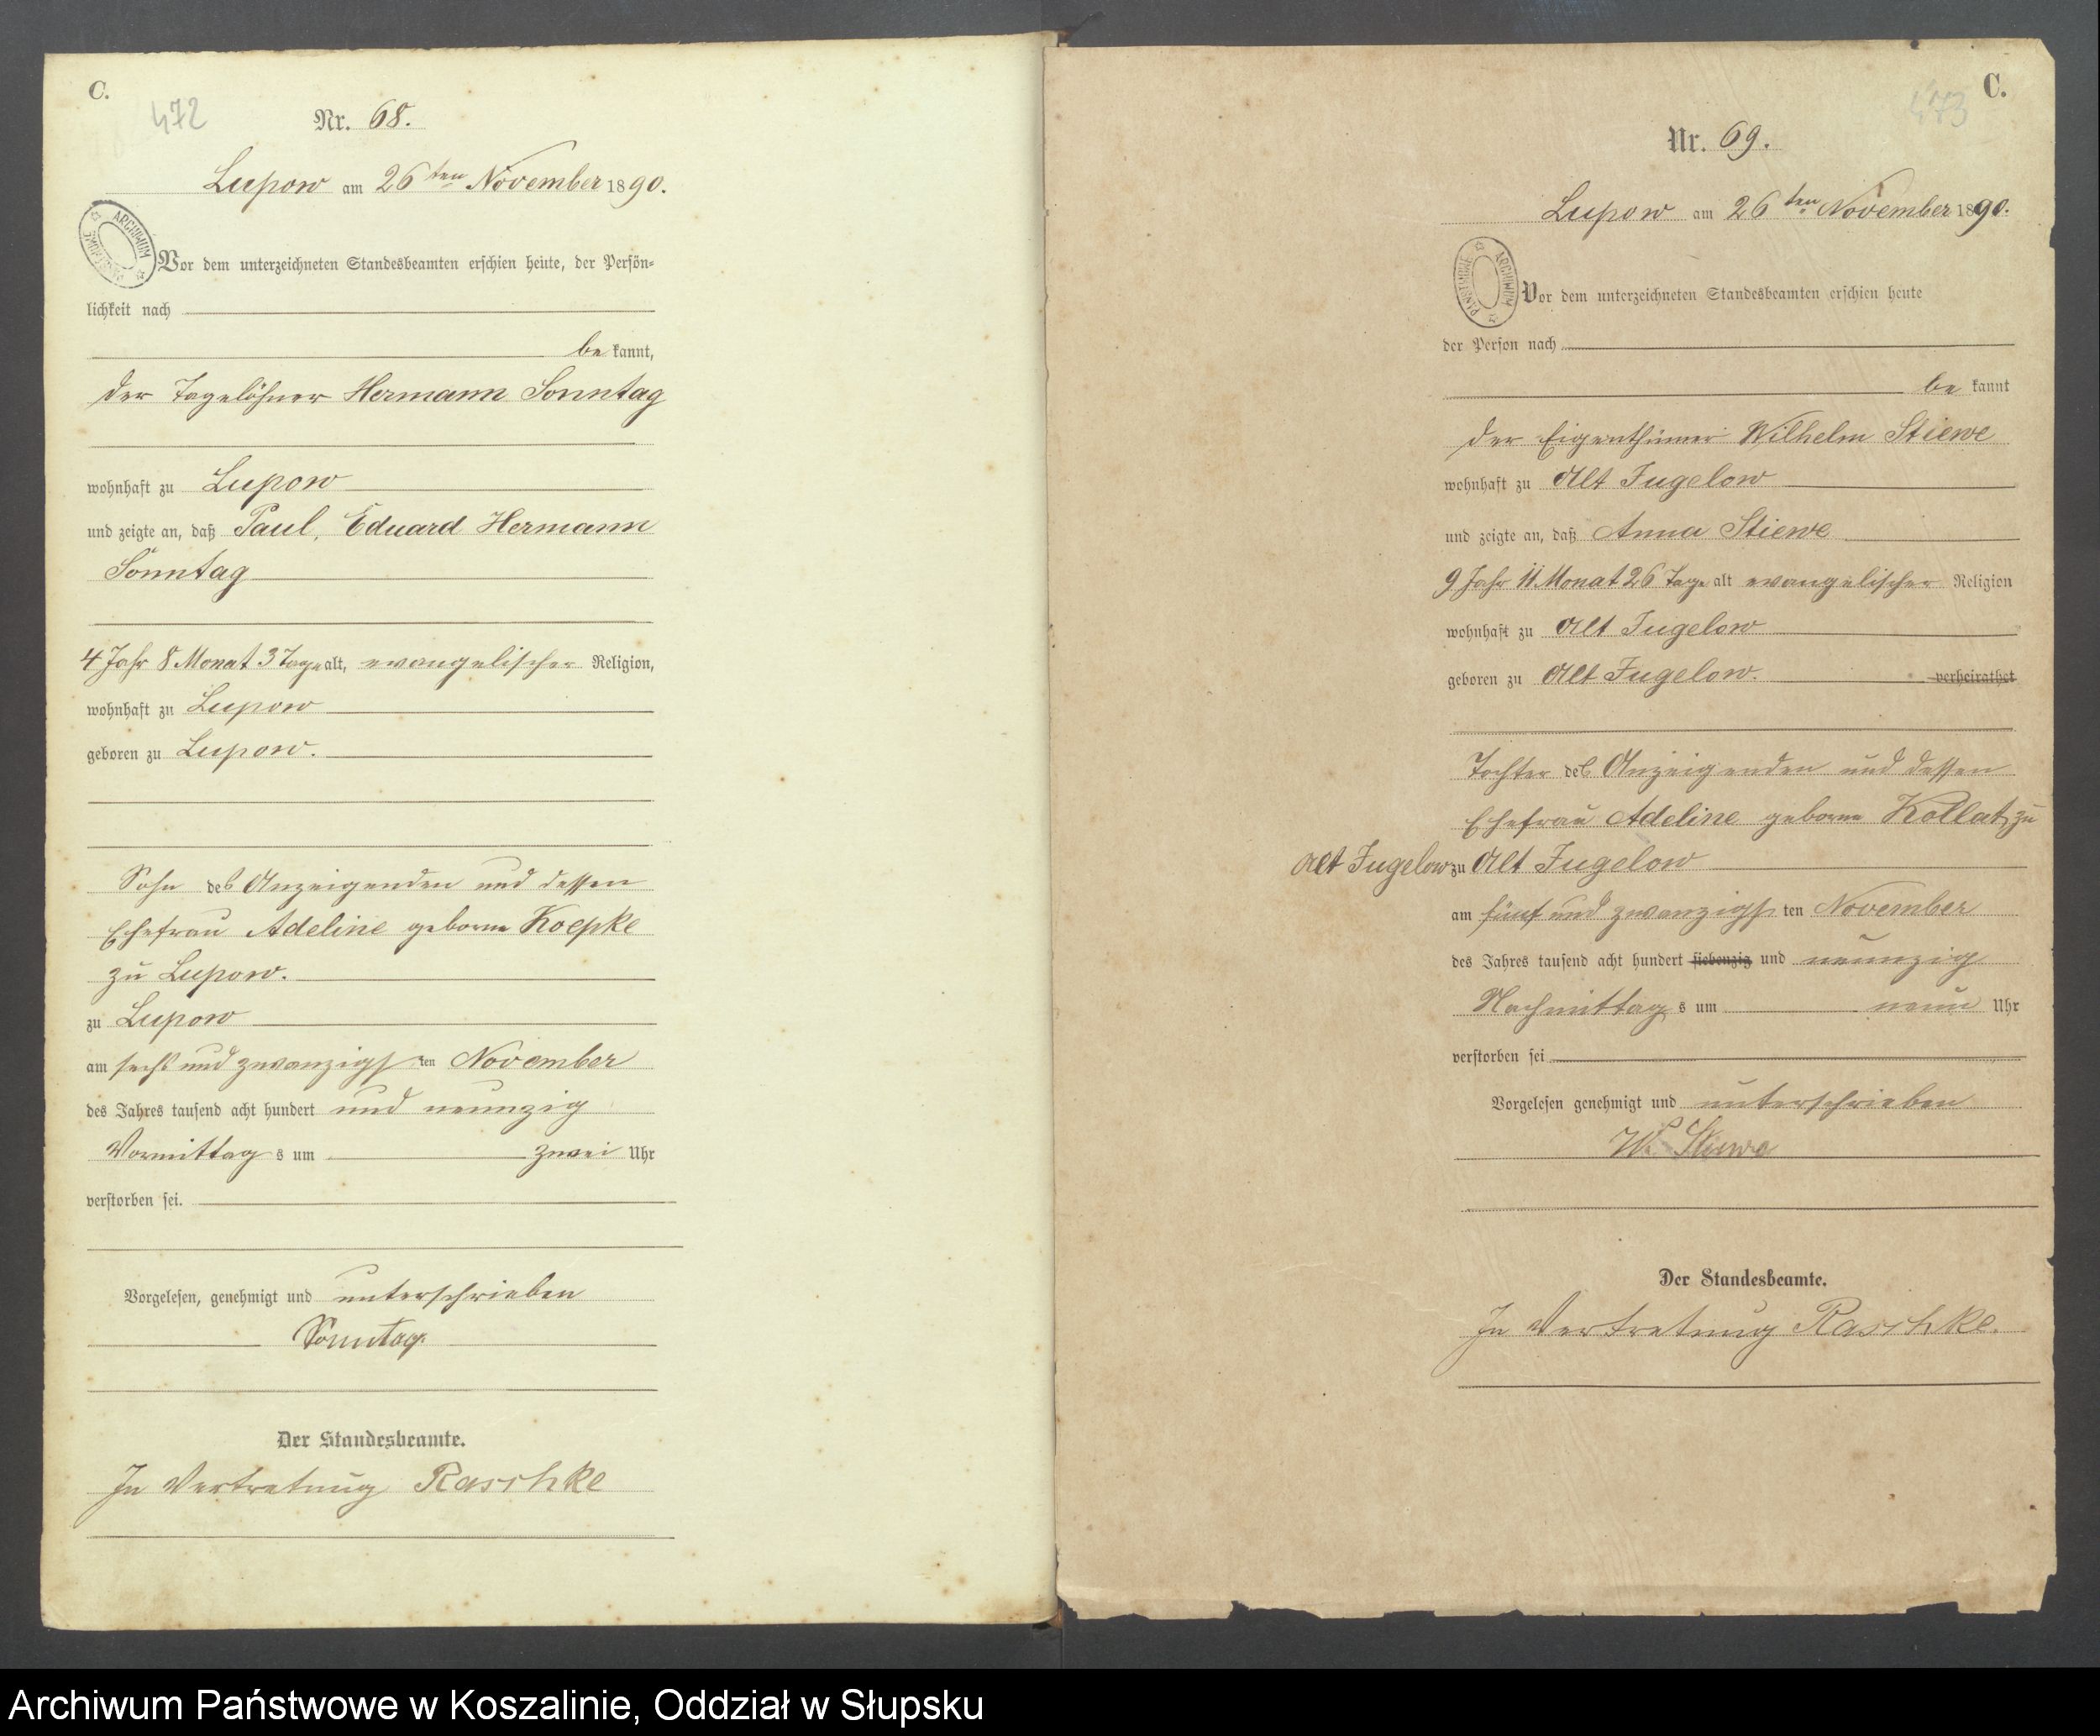 C.
472
Nr. 68.
Lupow am 26ten November 1890.
ARCHIWUM
Vor dem unterzeichneten Standesbeamten erschien heute, der Persön-
lichkeit nach
be kannt,
der Tagelöhner Hermann Sonntag
wohnhaft zu Lupow
und zeigte an, daß Paul, Eduard Hermann
Sonntag
4 Jahr 8 Monat 3 Tage alt, evangelischer Religion,
wohnhaft zu Lupow
geboren zu Lupow.
Sohn des Anzeigenden und dessen
Ehefrau Adeline geborne Koepke
zu Lupow.
zu Lupow
am sechs und zwanzigsten November
des Jahres tausend acht hundert und neunzig
Vormittag s um zwei Uhr
verstorben sei.
Vorgelesen, genehmigt und unterschrieben
Sonntag
Der Standesbeamte.
In Vertretung Raschke
C.
473
Nr. 69.
Lupow am 26ten November 1890.
ARCHIWUM PAŃSTWOWE
Vor dem unterzeichneten Standesbeamten erschien heute
der Person nach
be kannt
der Eigenthümer Wilhelm Stiewe
wohnhaft zu Alt Jugelow
und zeigte an, daß Anna Stiewe
9 Jahr 11 Monat 26 Tage alt evangelischer Religion
wohnhaft zu Alt Jugelow
geboren zu Alt Jugelow. verheirathet
Tochter des Anzeigenden und dessen
Ehefrau Adeline geborne Kollat, zu
Alt Jugelow zu Alt Jugelow
am fünf und zwanzigsten November
des Jahres tausend acht hundert siebenzig und neunzig
Nachmittag s um neun Uhr
verstorben sei
Vorgelesen genehmigt und unterschrieben
W. Stiewe
Der Standesbeamte.
In Vertretung Raschke.
Archiwum Państwowe w Koszalinie, Oddział w Słupsku